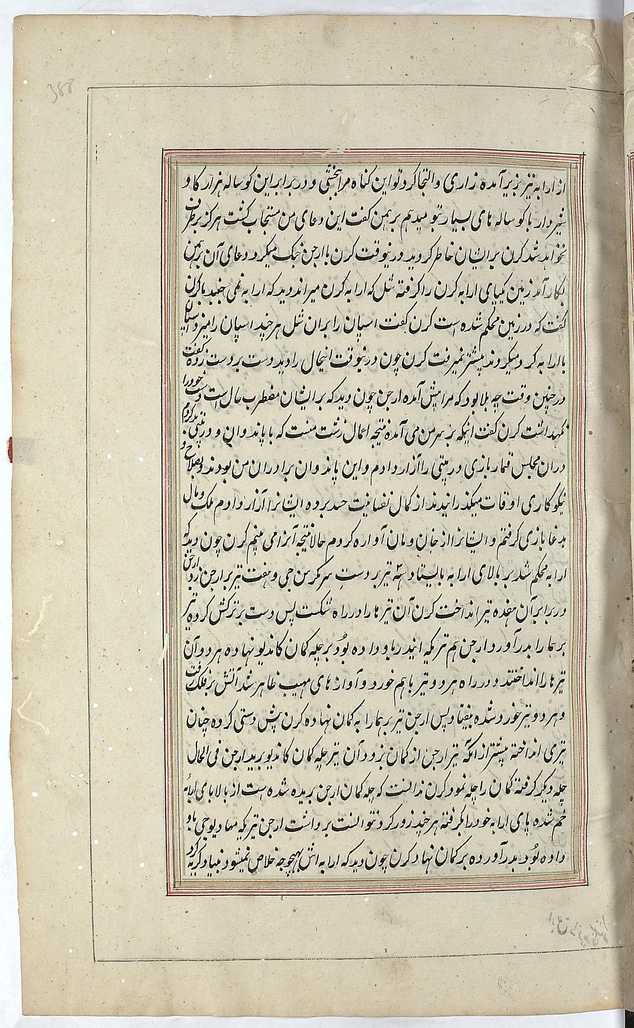 388
از ارابه نیز زیر آمده زاری و التجا کرد تو این گناه مرا ببخشی و در برابر این گوساله هزار گاو
شیردار با گوساله های بسیار بتو میدهم برهمن گفت این دعای من مستجاب گشت هرگز برطرف
نخواهد شد کرن پریشان خاطر گردید درینوقت کرن با ارجن جنگ میکرد دعای آن برهمن
بکار آمد زمین پای ارابه کرن را گرفته شل که ارابه کرن میراند دید که ارابه نمی جنبد با کرن
گفت که در زمین محکم شده است کرن گفت اسپان را بران شل هرچند اسپان را میزد اسپان
با ارابه گرد میگردند پیشتر نمیرفت کرن چون درینوقت اینحال را دید دست بر دست زده گفت
درچنین وقت چه بلا بود که مرا پیش آمد ارجن چون دید که پریشان و مضطرب حال است دست خود را
نگهداشت کرن گفت اینکه بر سر من می آمده نتیجه اعمال زشت منست که با پاندوان و دروپدی بد کردم
دران مجلس قمار بازی دروپدی را آزار دادم و این پاندوان برادران من بودند و بصلاح و
نیکوکاری اوقات میگذرانیدند از کمال نفسانیت حسد برده ایشانرا آزار دادم ملک و مال
بدغا بازی گرفتم و ایشانرا از خان و مان آواره کردم حالا نتیجه آنرا می بینم کرن چون دید که
ارابه محکم شد بر بالای ارابه بایستاد سه تیر بر دست سرکرشن جی و هفت تیر بر ارجن زد ارجن
در برابر آن هفده تیر انداخت کرن آن تیرها را در راه شکست پس دست بر ترکش کرده تیر
برهما را بدر آورد ارجن هم تیر که اندر باو داده بود بر چله کمان گاندیو نهاده هر دو آن
تیرها را انداختند و در راه هر دو تیر باهم خورد و آواز های مهیب ظاهر شد آتش بر فلک رفت
و هر دو تیر خورد شده بیفتاد پس ارجن تیر برهما را به کمان نهاده کرن پیش دستی کرده چنان
تیری انداخته پیشتر از آنکه تیر ارجن از کمان برود آن تیر چله کمان گاندیو برید ارجن فی الحال
چله دیگر گرفته کمان را چله نمود کرن ندانست که چله کمان ارجن بریده شده است از بالای ارابه
خم شده پای ارابه خود را گرفته هرچند زور کرد نتوانست برداشت ارجن تیر که مهادیوجی باو
داده بود بدر آورده بر کمان نهاد کرن چون دید که ارابه اش بهیچوجه خلاص نمیشود بنیاد گریه کرد